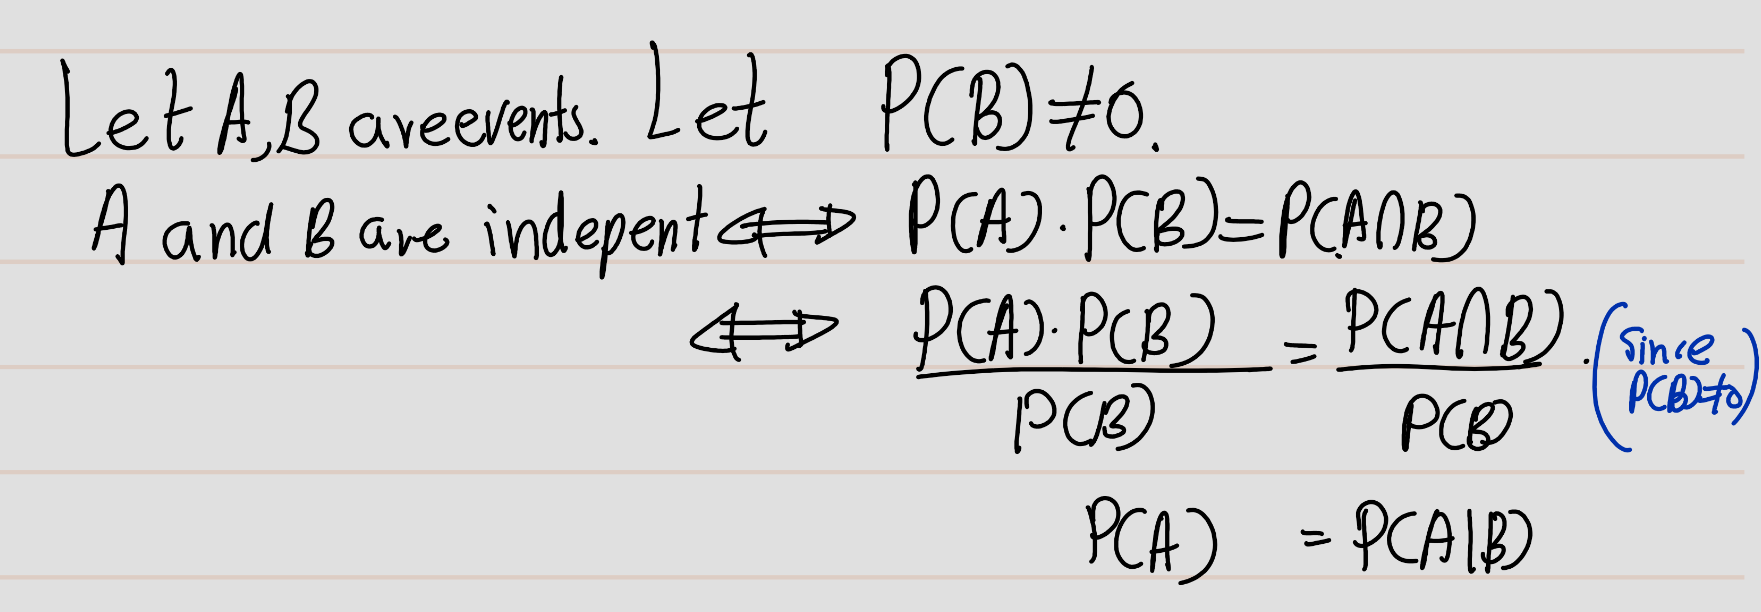 Let A,B are events. Let P(B)≠0.
A and B are indepent ⟺ P(A)·P(B)=P(A∩B)
⟺ P(A)·P(B)/P(B) = P(A∩B)/P(B). (Since P(B)≠0)
P(A) = P(A|B)